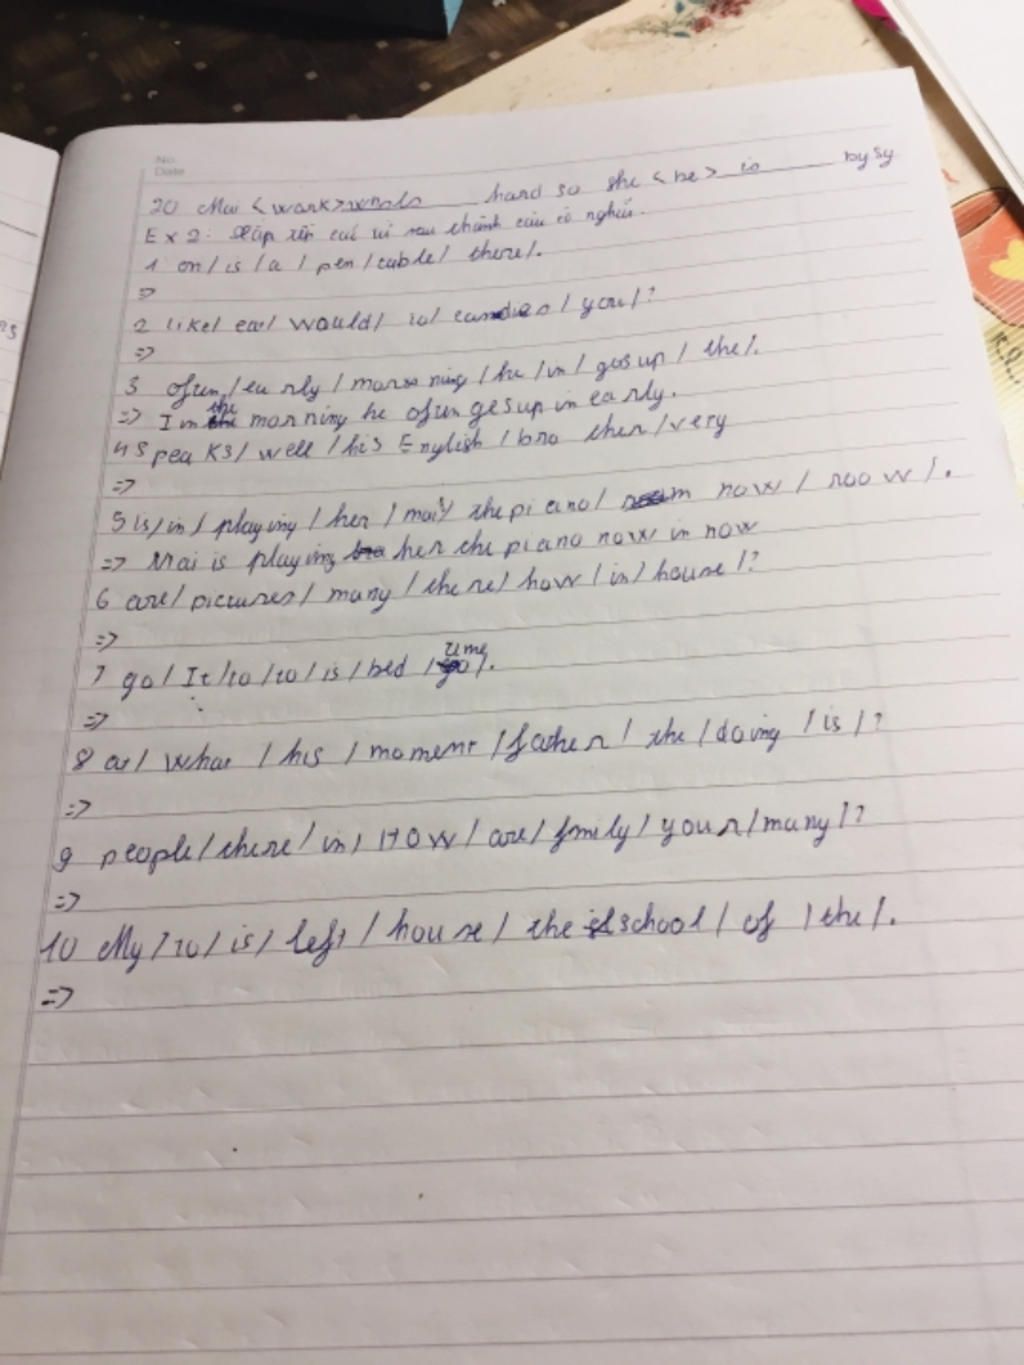 No.
Date
20 Mai <work> works hard so she <be> is by sy
Ex 2: Sắp xếp các từ sau thành câu có nghĩa.
1 on / is / a / pen / table / there /.
=>
2 like / eat / would / to / candies / you / ?
=>
3 often / early / morning / he / in / gets up / the /.
=> In the morning he often gets up in early.
4 speaks / well / his English / brother / very
=>
5 is / in / playing / her / mai / the piano / now / room /.
=> Mai is playing her the piano now in now
6 are / pictures / many / there / how / in / house / ?
=>
7 go / It / to / to / is / bed / time /.
=>
8 at / what / his / moment / father / the / doing / is / ?
=>
9 people / there / in / How / are / fmily / your / many / ?
=>
10 My / to / is / left / house / the school / of / the /.
=>